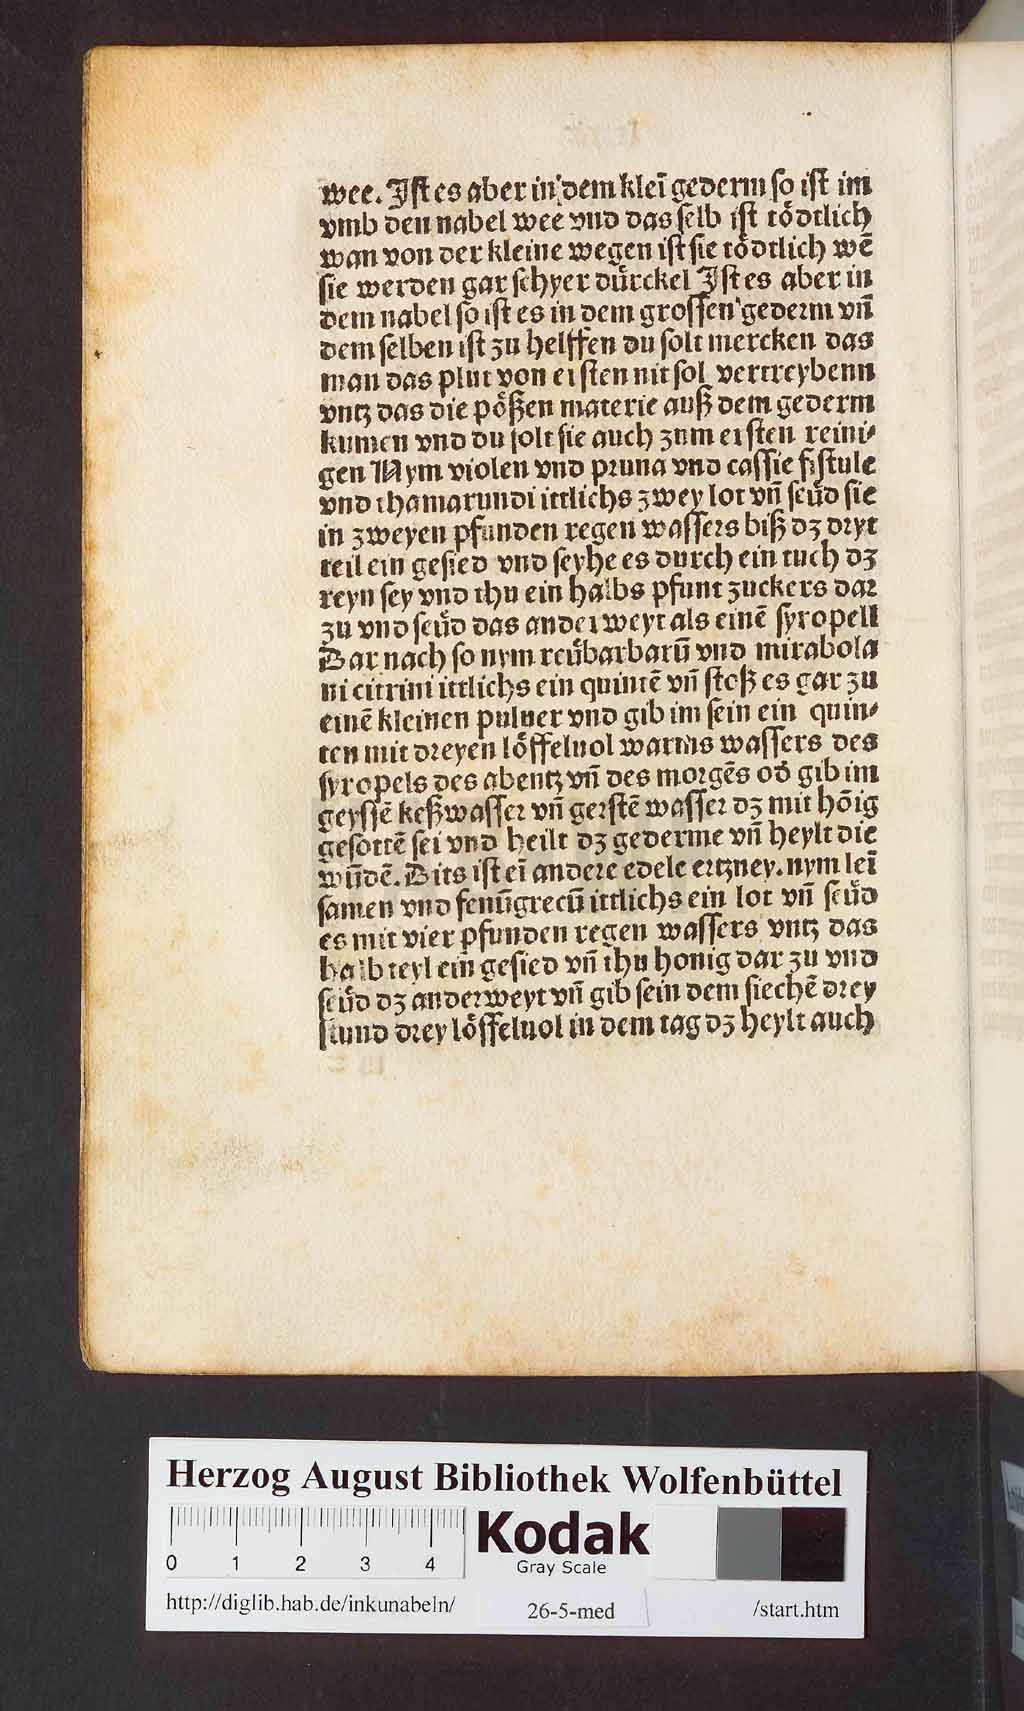 wee. Jst es aber in dem kleī gederm so ist im
vmb den nabel wee vnd das selb ist tödtlich
wan von der kleine wegen ist sie tödtlich wē
sie werden gar schyer dürckel Jst es aber in
dem nabel so ist es in dem grossen gederm vn̄
dem selben ist zu helffen du solt mercken das
man das plut von ersten nit sol vertreybenn
vntz das die pößen materie auß dem gederm
kumen vnd du solt sie auch zum ersten reini⸗
gen Nym violen vnd pruna vnd cassie fistule
vnd thamarundi ittlichs zwey lot vn̄ seüd sie
in zweyen pfunden regen wassers biß dz dryt
teil ein gesied vnd seyhe es durch ein tuch dz
reyn sey vnd thu ein halbs pfunt zuckers dar
zu vnd seüd das anderweyt als einē syropell
Dar nach so nym reübarbarū vnd mirabola
ni citrini ittlichs ein quintē vn̄ stoß es gar zu
einē kleinen puluer vnd gib im sein ein quin⸗
ten mit dreyen löffeluol warms wassers des
syropels des abentz vn̄ des morgēs od gib im
geyssē keßwasser vn̄ gerstē wasser dz mit hōig
gesottē sei vnd heilt dz gederme vn̄ heylt die
wūdē. Dits ist eī andere edele ertzney. nym leī
samen vnd fenūgrecū ittlichs ein lot vn̄ seüd
es mit vier pfunden regen wassers vntz das
halb teyl ein gesied vn̄ thu honig dar zu vnd
seüd dz anderweyt vn̄ gib sein dem siechē drey
stund drey löffeluol in dem tag dz heylt auch
Herzog August Bibliothek Wolfenbüttel
0 1 2 3 4
Kodak
Gray Scale
http://diglib.hab.de/inkunabeln/ 26-5-med /start.htm